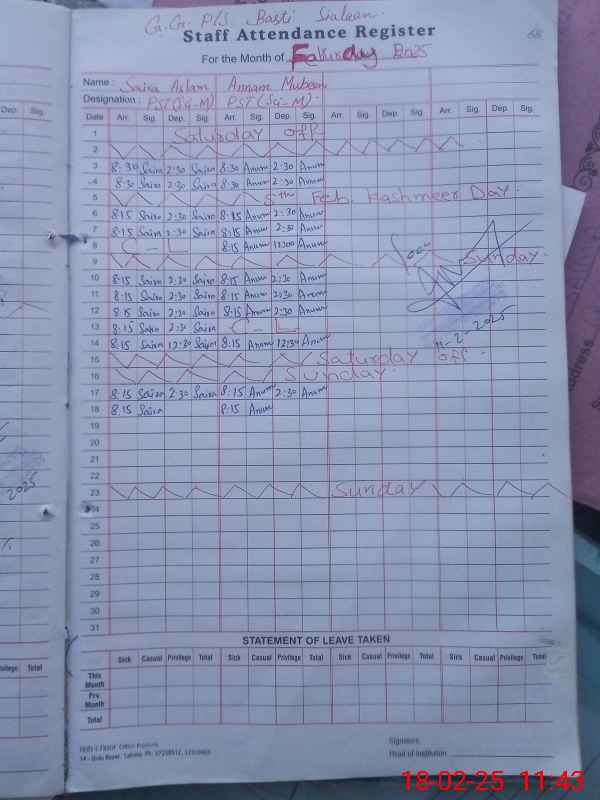 G.G. P/S Basti Sialean.
Staff Attendance Register
For the Month of
Name : Saira Aslam Annam Mubeen
Designation : PST(SG-M) PST(SG-M)
Date Arr. Sig. Dep. Sig Arr. Sig. Dep. Sig. Arr. Sig. Dep. Sig. Arr. Sig. Dep. Sig.
1 Saturday off
2
3 8:30 Saira 2:30 Saira 8:30 Anum 2:30 Anum
4 8:30 Saira 2:30 Saira 8:30 Anum 2:30 Anum
5 5th Feb. Kashmeer Day.
6 8:15 Saira 2:30 Saira 8:15 Anum 2:30 Anum
7 8:15 Saira 2:30 Saira 8:15 Anum 2:30 Anum
8 C - L 8:15 Anum Anum
9 Sunday.
10 8:15 Saira 2:30 Saira 8:15 Anum 2:30 Anum
11 8:15 Saira 2:30 Saira 8:15 Anum 2:30 Anum
12 8:15 Saira 2:30 Saira 8:15 Anum 2:30 Anum
13 8:15 Saira 2:30 Saira C - L
14 8:15 Saira 12:30 Saira 8:15 Anum 12:30 Anum
11-2-2025
15 Saturday off.
16 Sunday.
17 8:15 Saira 2:30 Saira 8:15 Anum 2:30 Anum
18 8:15 Saira 8:15 Anum
19
20
21
22
23 Sunday
24
25
26
27
28
29
30
31
STATEMENT OF LEAVE TAKEN
Sick Casual Privilege Total Sick Casual Privilege Total Sick Casual Privilege Total Sick Casual Privilege Total
This Month
Prv. Month
Total
Signature
Head of Institution
18-02-25 11:43